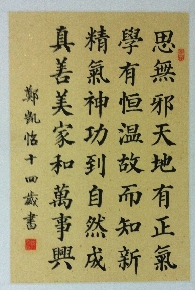 思無邪天地有正氣
學有恒温故而知新
精氣神功到自然成
真善美家和萬事興
鄭凱怡十四歲書